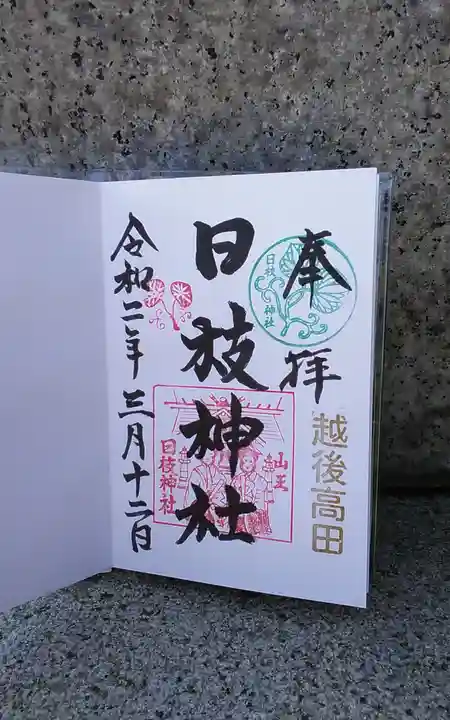 奉拝
越後高田
日枝神社
日枝神社
山王
日枝神社
令和二年三月十二日